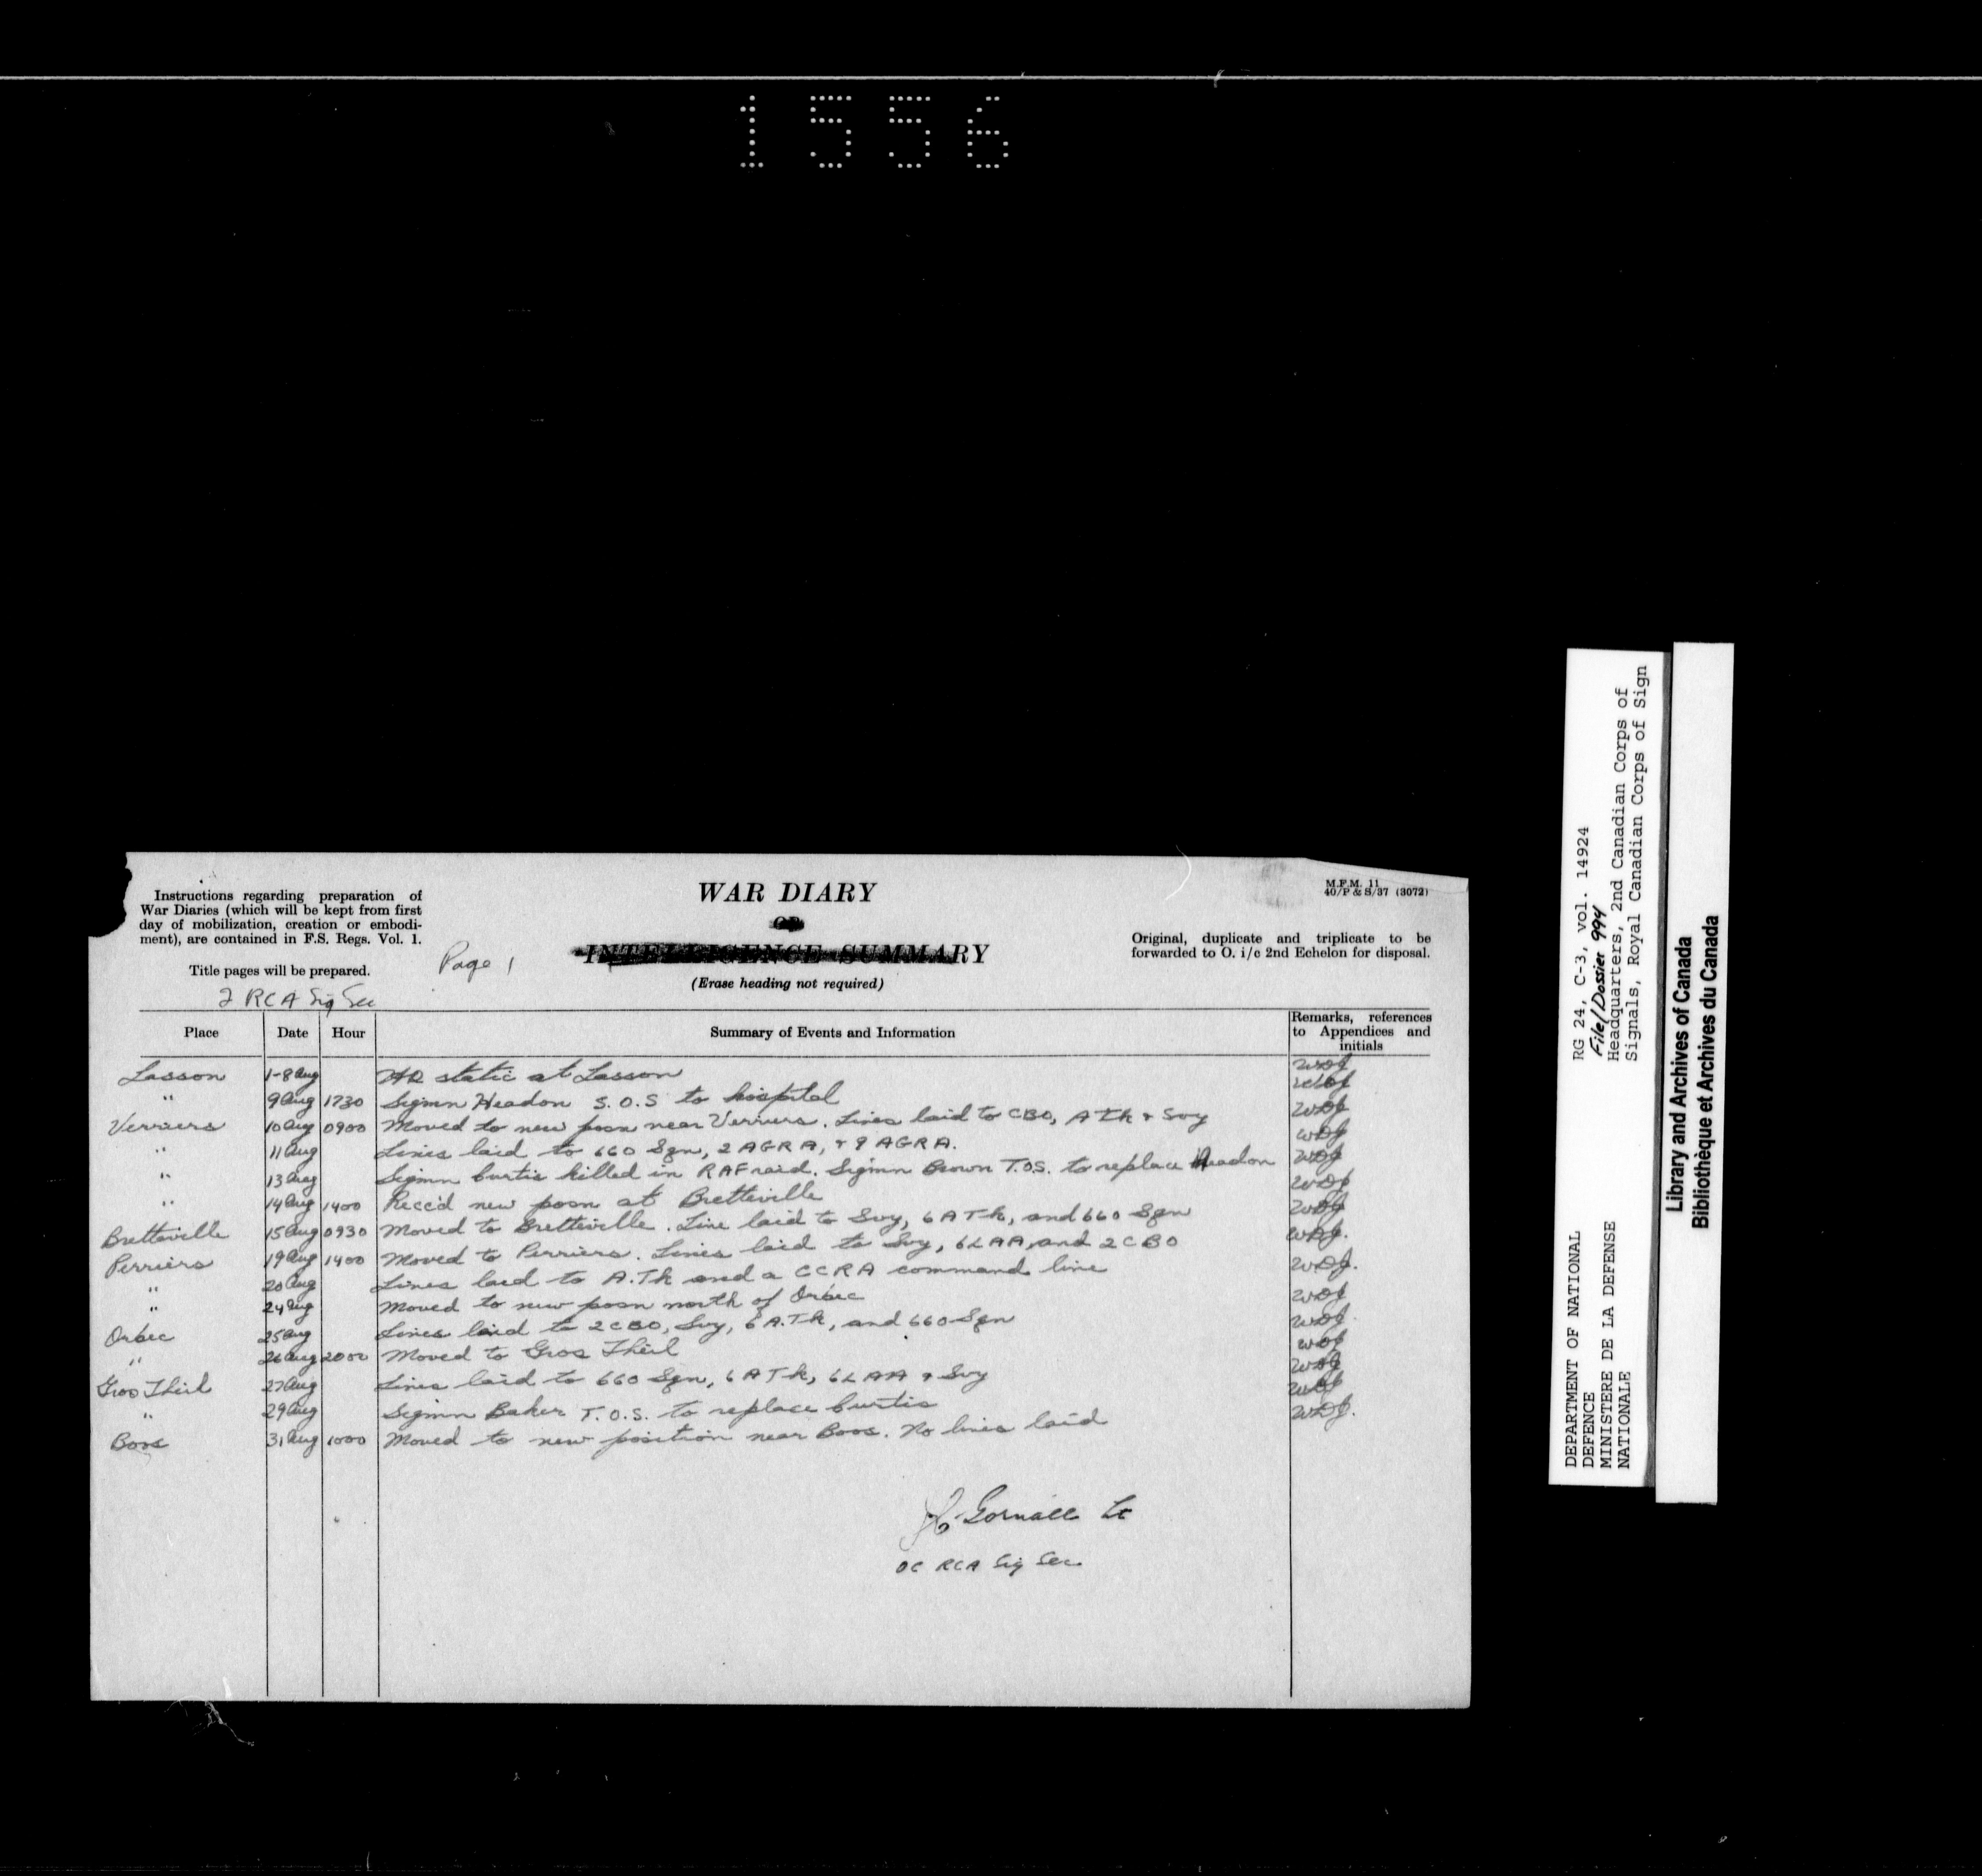 1556
Instructions regarding preparation of
War Diaries (which will be kept from first
day of mobilization, creation or embodi-
ment), are contained in F.S. Regs. Vol. 1.
Title pages will be prepared.
2 RCA Sig Sec
Page 1
WAR DIARY
OR
INTELLIGENCE SUMMARY
(Erase heading not required)
M.F.M. 11
40/P & S/37 (3072)
Original, duplicate and triplicate to be
forwarded to O. i/c 2nd Echelon for disposal.
Place Date Hour Summary of Events and Information Remarks, references to Appendices and initials
Lasson 1-8 Aug HQ static at Lasson WDJ
" 9 Aug 1730 Sigmn Headon S.O.S to hospital WDJ
Verriers 10 Aug 0900 Moved to new posn near Verriers. Lines laid to CBO, A Tk & Svy WDJ
" 11 Aug Lines laid to 660 Sqn, 2 AGRA, & 9 AGRA. WDJ
" 13 Aug Sigmn Curtis killed in RAF raid. Sigmn Brown T.O.S. to replace Headon WDJ
" 14 Aug 1400 Recc'd new posn at Bretteville WDJ
Bretteville 15 Aug 0930 Moved to Bretteville. Line laid to Svy, 6 A Tk, and 660 Sqn WDJ
Perriers 19 Aug 1400 Moved to Perriers. Lines laid to Svy, 6 LAA, and 2 CBO WDJ.
" 20 Aug Lines laid to A.Tk and a CCRA command line WDJ.
" 24 Aug Moved to new posn north of Orbec WDJ
Orbec 25 Aug Lines laid to 2 CBO, Svy, 6 A.Tk, and 660 Sqn WDJ
" 26 Aug 2000 Moved to Gros Theil WDJ
Gros Theil 27 Aug Lines laid to 660 Sqn, 6 A Tk, 6 LAA & Svy WDJ
" 29 Aug Sigmn Baker T.O.S. to replace Curtis WDJ
Boos 31 Aug 1000 Moved to new position near Boos. No lines laid WDJ.
Gornall Lt
OC RCA Sig Sec
DEPARTMENT OF NATIONAL
DEFENCE
MINISTERE DE LA DEFENSE
NATIONALE
RG 24, C-3, vol. 14924
File/Dossier 994
Headquarters, 2nd Canadian Corps of
Signals, Royal Canadian Corps of Sign
Library and Archives of Canada
Bibliothèque et Archives du Canada